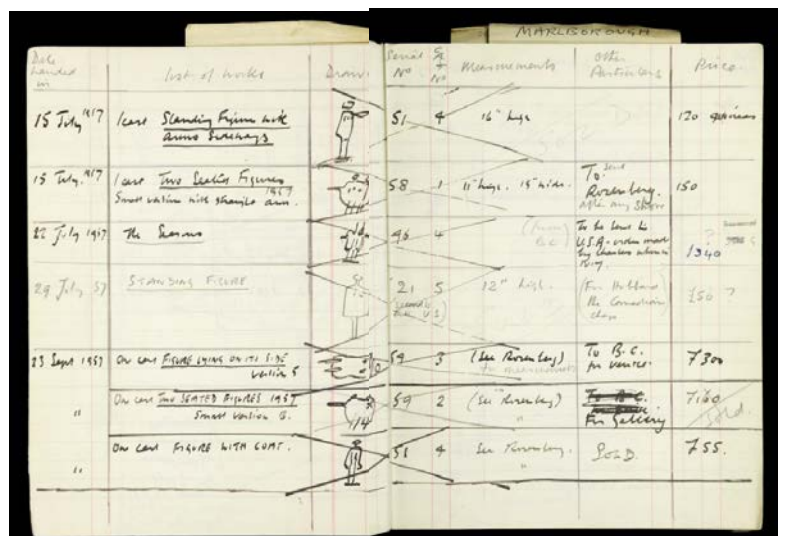 MARLBOROUGH
Date handed in
list of works
Draw.
Serial No
Measurements
Other Particulars
Price
15 July 1957
1 cast Standing Figure with
arms Sideways
51
4
16" high
120 guineas
15 July. 1957
1 cast Two Seated Figures
1957
Small version with straight arm.
58
1
11" high. 15" wide.
To send
Rosenberg.
after any Show
150
22 July 1957
The Seasons
46
4
To be sent to
U.S.A.
?
£340
29 July 57
STANDING FIGURE
21
5
12" high.
(For Hubbard
the Canadian
chap
£50 ?
23 Sept 1957
One cast FIGURE LYING ON ITS SIDE
version 5
59
3
(See Rosenberg)
for measurements
To B.C.
for Venice.
£300
"
One cast TWO SEATED FIGURES 1957
Small version B.
59
2
(See Rosenberg)
"
For Gallery
£160
Sold.
"
One cast FIGURE WITH COAT.
51
4
See Rosenberg.
"
SOLD.
£55.